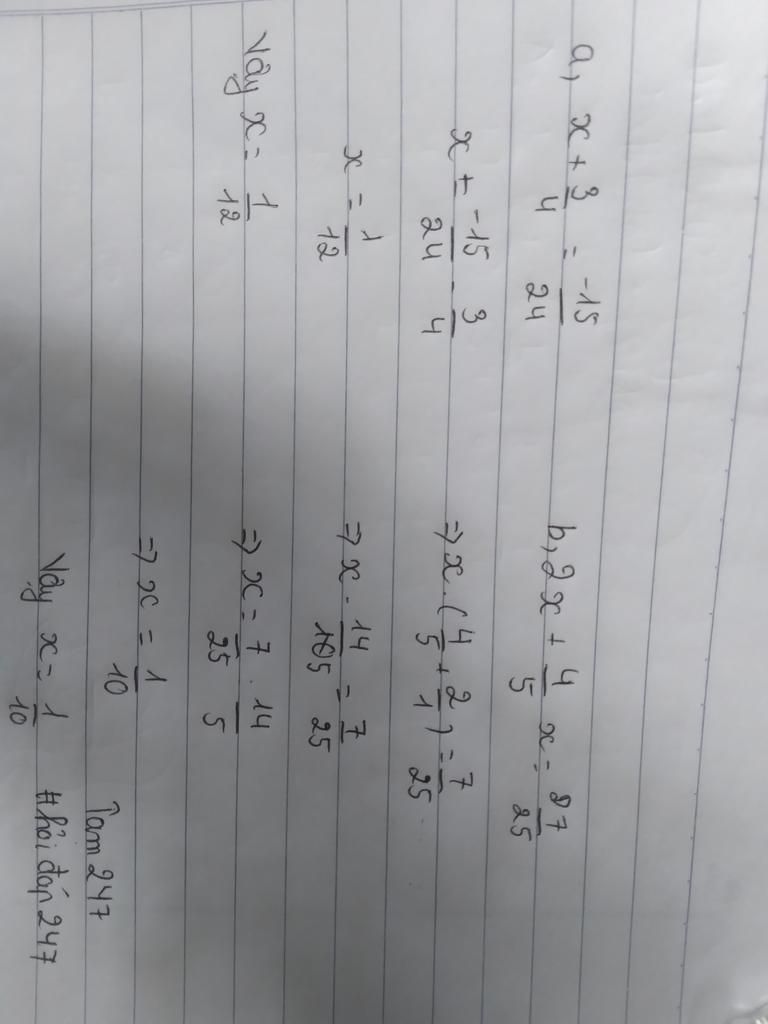 a, x + 3/4 = -15/24
x = -15/24 - 3/4
x = 1/12
Vậy x = 1/12
b, 2x + 4/5 x = 7/25
=> x . (4/5 + 2/1) = 7/25
=> x . 14/5 = 7/25
=> x = 7/25 . 14/5
=> x = 1/10
Vậy x = 1/10
Tam247
#hỏi đáp 247